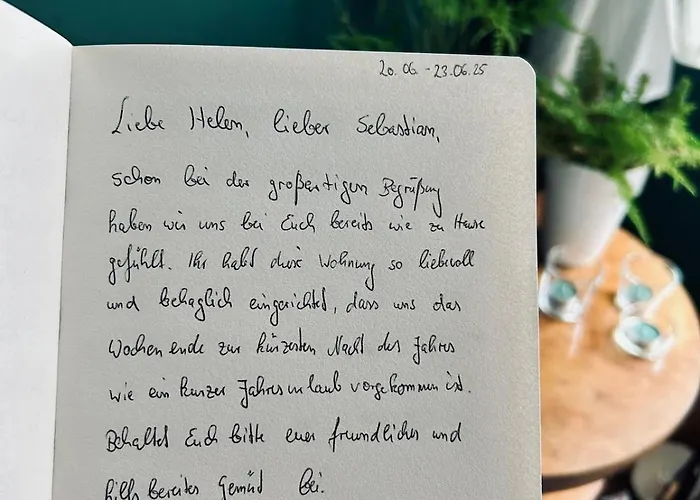 20.06. - 23.06.25
Liebe Helen, lieber Sebastian,
schon bei der großartigen Begrüßung
haben wir uns bei Euch bereits wie zu Hause
gefühlt. Ihr habt diese Wohnung so liebevoll
und behaglich eingerichtet, dass uns das
Wochenende zur kürzesten Nacht des Jahres
wie ein kurzer Jahresurlaub vorgekommen ist.
Behaltet Euch bitte euer freundliches und
hilfsbereites Gemüt bei.